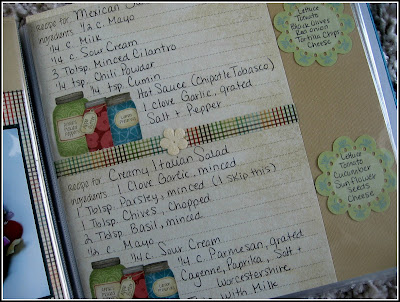 Recipe for: Mexican
ingredients: 1/2 c. Mayo
1/4 c. Milk
1/4 c. Sour Cream
3 Tbsp. Minced Cilantro
1/4 tsp. Chili Powder
1/4 tsp Cumin
Hot Sauce (Chipotle Tabasco)
1 clove Garlic, grated
Salt + Pepper
Recipe for: Creamy Italian Salad
ingredients: 1 Clove Garlic, minced
1 Tblsp. Parsley, minced (I skip this)
1 Tblsp Chives, chopped
2 Tblsp Basil, minced
c. Mayo
1/4 c. Sour Cream
1/4 c. Parmesan, grated
Cayenne, Paprika, Salt +
Worcestershire,
with Milk
Lettuce
Tomato
Black Olives
Red onion
Tortilla Chips
Cheese
Lettuce
Tomato
Cucumber
Sun Flower
Seeds
Cheese